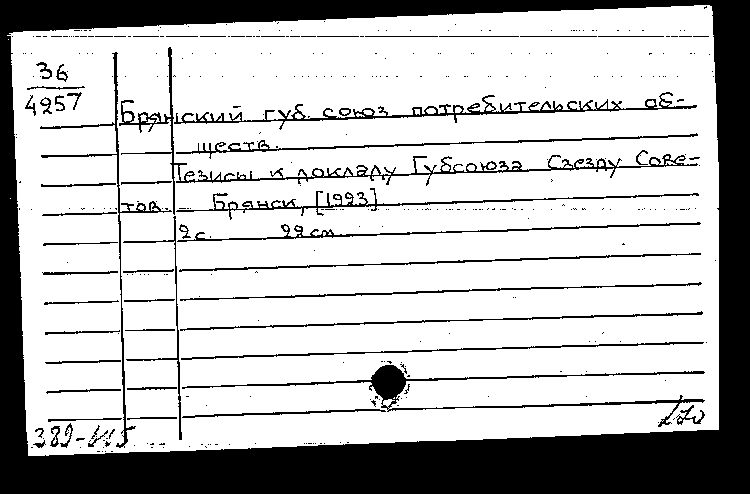 36
4257
Брянский губ. союз потребительских об-
ществ.
Тезисы к докладу Губсоюза Съезду Сове-
тов. – Брянск, [1923]
2 с. 22 см.